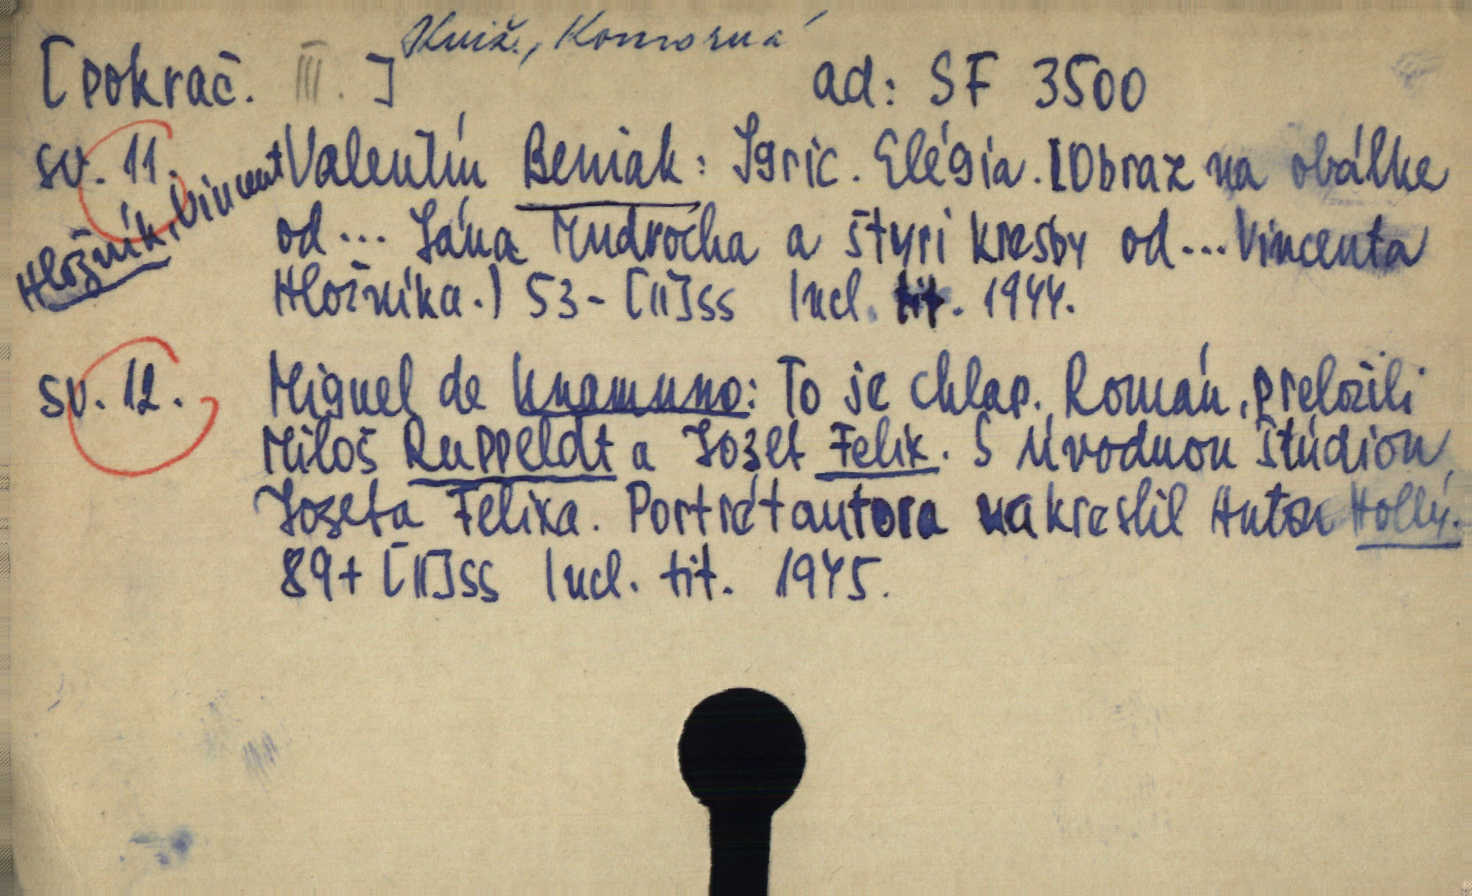 Kniž., Komorná
[pokrač. III. ] ad: SF 3500
sv. 11. Valentín Beniak: Igric. Elégia. (Obraz na obálke
Hložník, Vincent
od ... Jána Mudrocha a štyri kresby od ... Vincenta
Hložníka.) 53 - [II] ss Incl. tit. 1944.
sv. 12. Miguel de Unamuno: To je chlap. Román, preložili
Miloš Ruppeldt a Jozef Felix. S úvodnou štúdiou
Jozefa Felixa. Portrét autora nakreslil Anton Hollý.
89 + [II] ss Incl. tit. 1945.